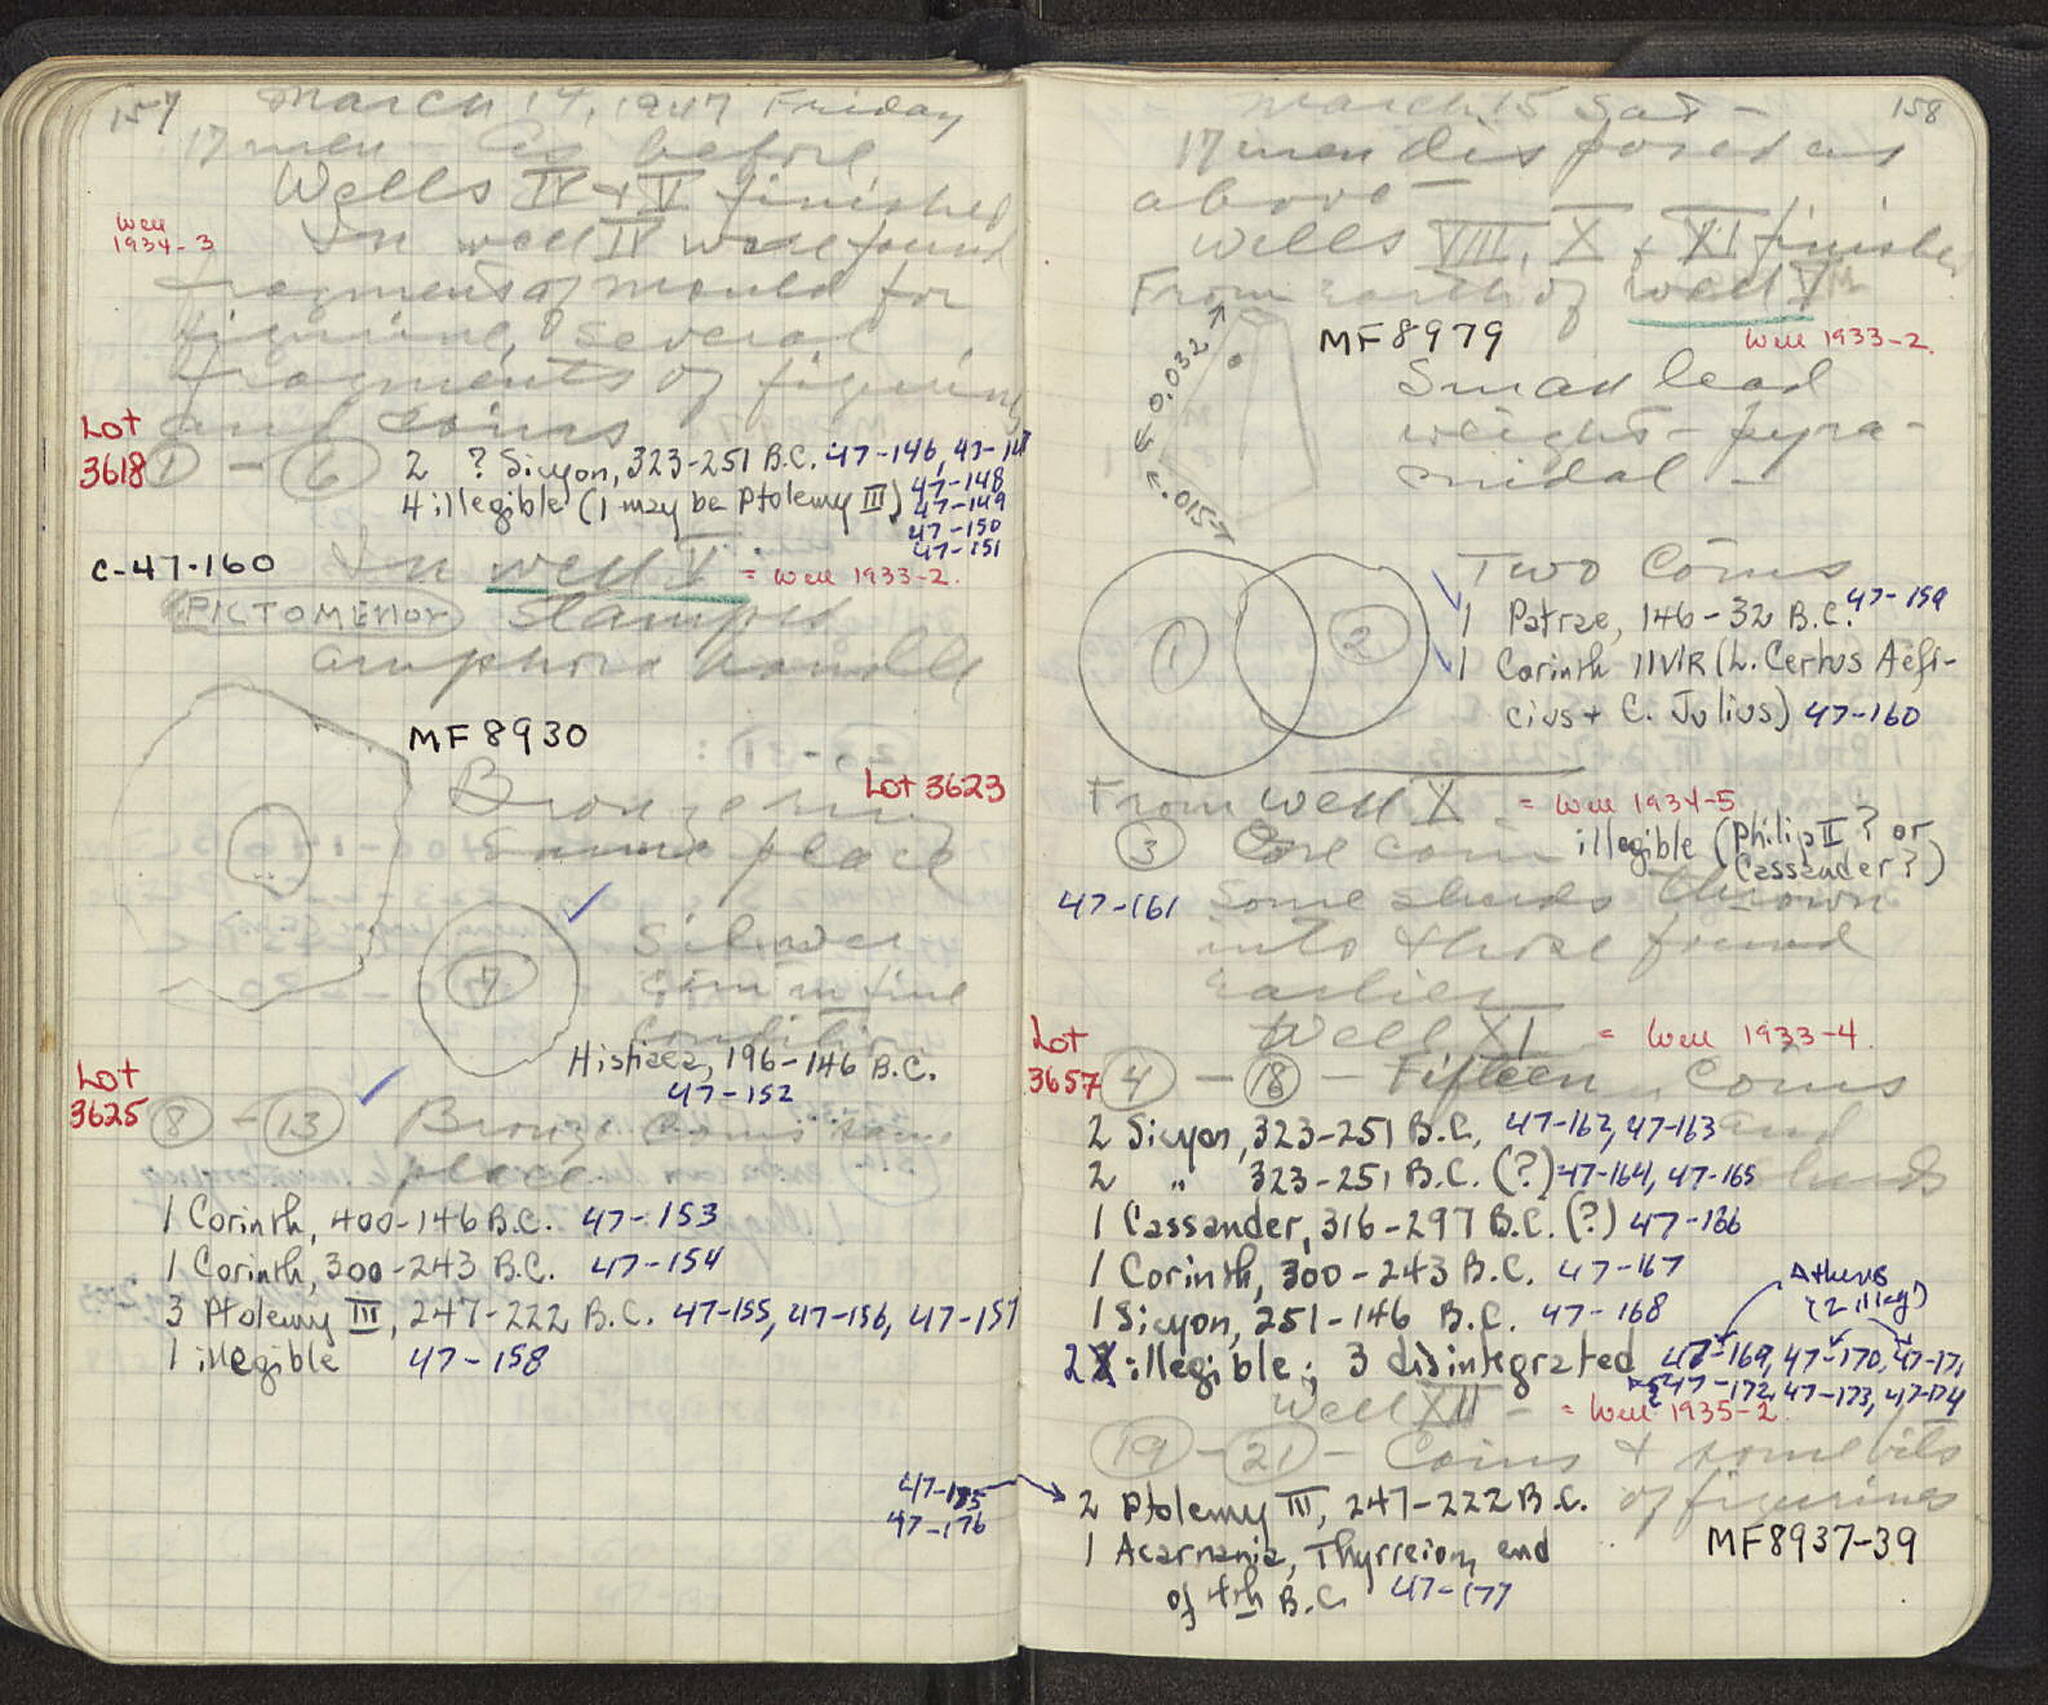 157 March 14, 1947 Friday
17 men - As before
Wells IV + V finished
Well
1934-3
In well IV were found
fragments of mould for
figurine, several
fragments of figurines
and coins
Lot
3618
1 - 6 2 ? Sicyon, 323-251 B.C. 47-146, 47-147
4 illegible (1 may be Ptolemy III) 47-148
47-149
47-150
47-151
C-47-160 In well V = Well 1933-2.
stamped
amphora handle
MF 8930
Bronze
Lot 3623
same place
7 Silver
coin in fine
condition
Histiaea, 196-146 B.C.
47-152
Lot
3625
8 - 13 Bronze coins same
place
1 Corinth, 400-146 B.C. 47-153
1 Corinth, 300-243 B.C. 47-154
3 Ptolemy III, 247-222 B.C. 47-155, 47-156, 47-157
1 illegible 47-158
47-175
47-176
March 15 Sat - 158
17 men disposed as
above -
Wells VIII, X + XI finished
From earth of well V
MF 8979 Well 1933-2.
←0.032→
Small lead
weight - pyra-
midal -
←.0157
Two Coins
1 2
1 Patrae, 146-32 B.C. 47-159
1 Corinth IIVIR (L. Certus Aefi-
cius + C. Julius) 47-160
From well X = Well 1934-5
3 One coin illegible (Philip II? or
Cassander?)
47-161 Some sherds thrown
into those found
earlier
Well XI = Well 1933-4.
Lot
3657
4 - 18 - Fifteen Coins
and
sherds
2 Sicyon, 323-251 B.C., 47-162, 47-163
2 " 323-251 B.C. (?) 47-164, 47-165
1 Cassander, 316-297 B.C. (?) 47-166
1 Corinth, 300-243 B.C. 47-167
1 Sicyon, 251-146 B.C. 47-168
Athens
(2 illeg)
2 illegible; 3 disintegrated 47-169, 47-170, 47-171
47-172, 47-173, 47-174
Well XII - = Well 1935-2.
19 - 21 - Coins + some bits
of figurines
2 Ptolemy III, 247-222 B.C.
1 Acarnania, Thyrreion, end
of 4th B.C. 47-177
MF 8937-39